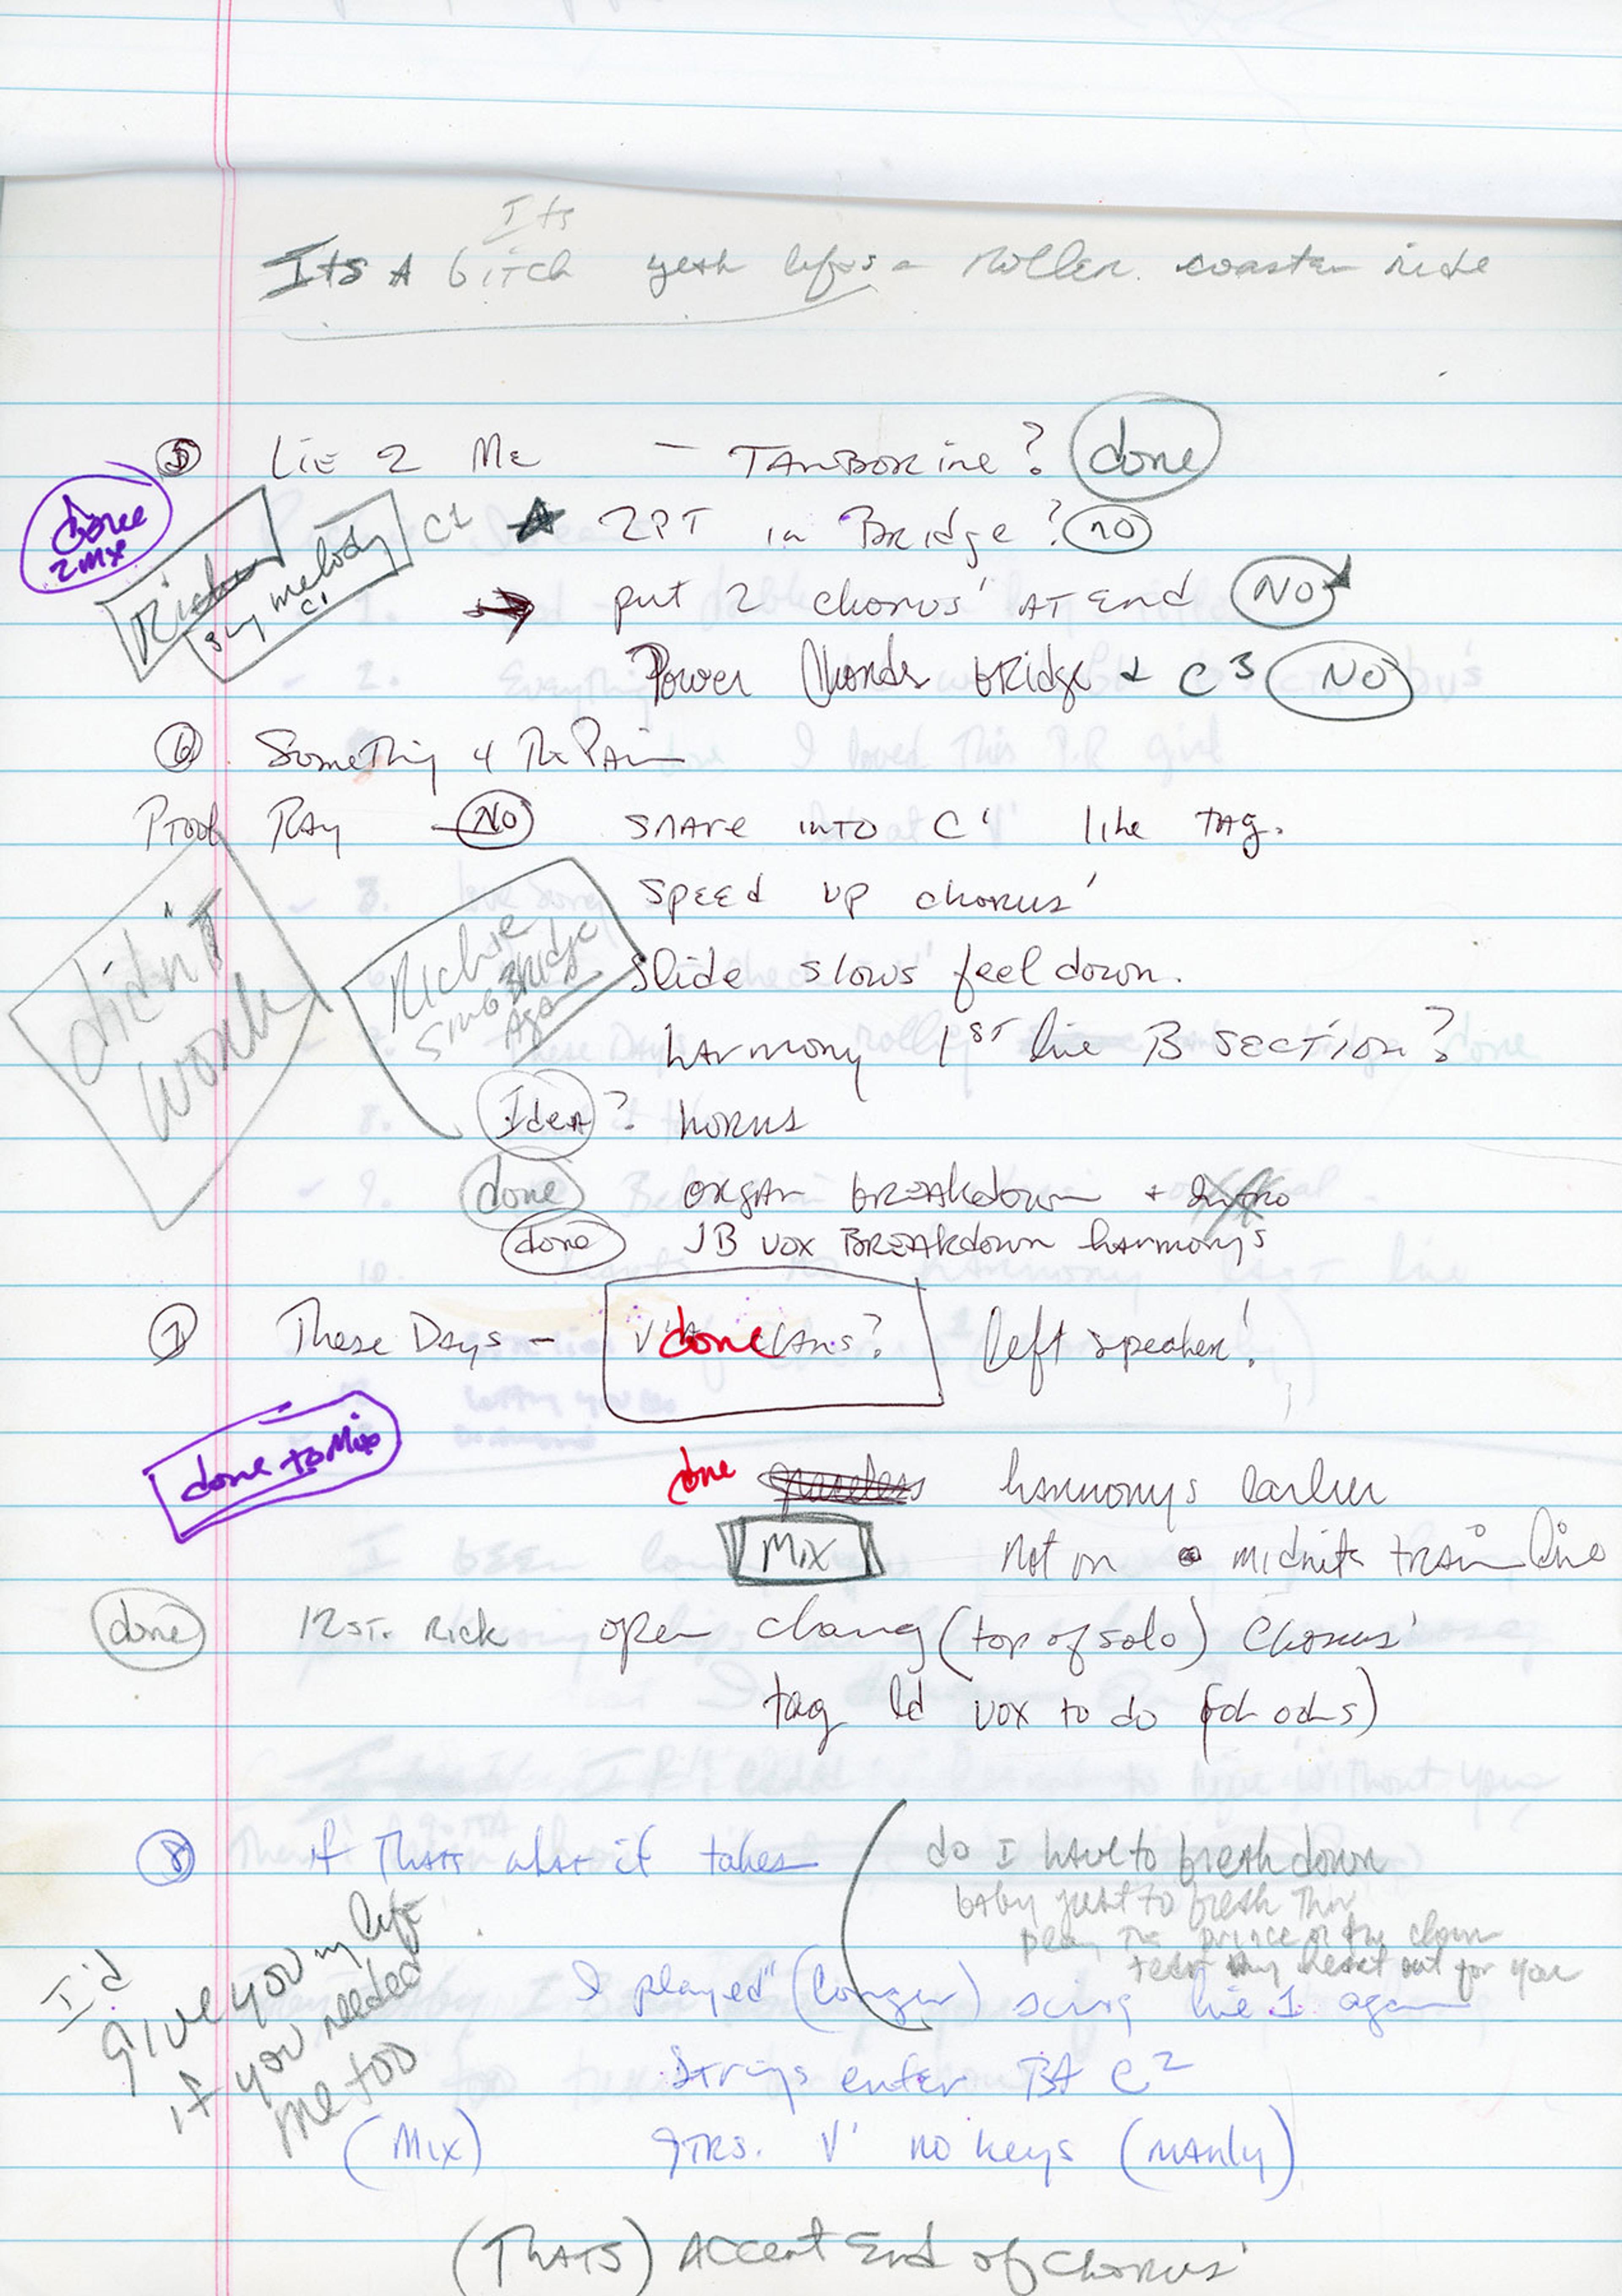 Its
Its A bitch yeah lifes a roller coaster ride
5 Lie 2 Me - TAmBORine? done
done 2 Mx
Richie sing melody C1 C1
2PT in Bridge? no
put 2 chorus' AT End NO
Power Chords bridge + C3 NO
6 Something 4 The PAin
Proof RAy NO snare into C1 like tag.
didn't work
Speed up chorus'
Richie SING BRIDGE AgAin
Slide slows feel down.
harmony 1ST line B SECTION?
Idea? horns
done organ breakdown + Intro
done JB vox BREAkdown harmonys
7 These Days - done left speaker!
done to Mix
done harmonys earlier
Mix Not on midnite train line
done 12 ST. Rick open (top of solo) Chorus'
tag ld vox to do (oh ohs)
8 if Thats what it takes
do I have to break down
baby just to break thru
play the prince or the clown
tear my heart out for you
I'd give you my life
if you needed
me too
I played" (longer) sing line 1 again
Strings enter C2
(Mix) gTRS. V' no keys (manly)
(ThATS) Accent End of Chorus'